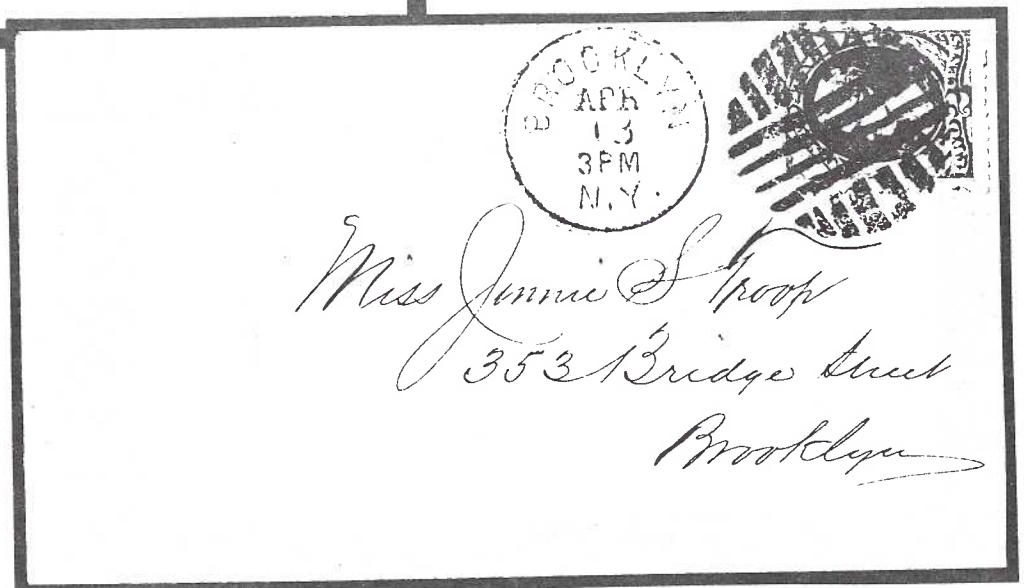 BROOKLYN
APR
13
3PM
N.Y.
Miss Jennie S Troop
353 Bridge Street
Brooklyn